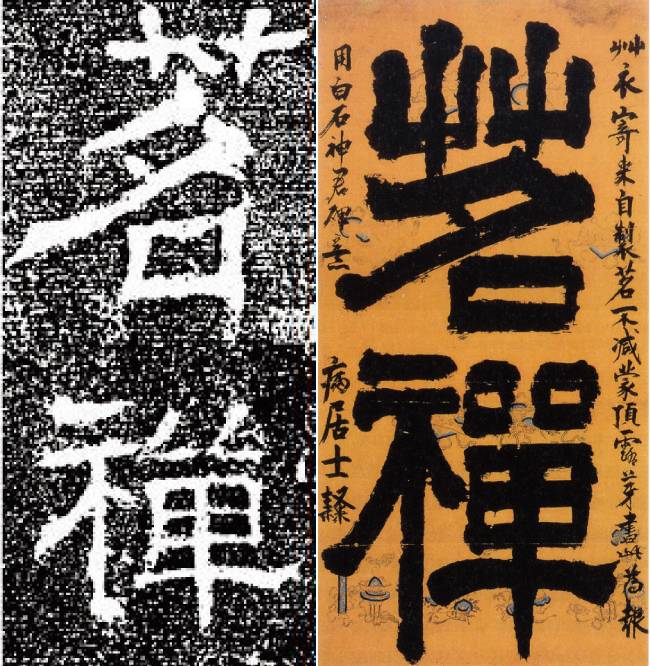 茗禅
茗禪
艸衣寄来自製茗不減蒙頂露芽書此為報
用白石神君碑意
病居士隸